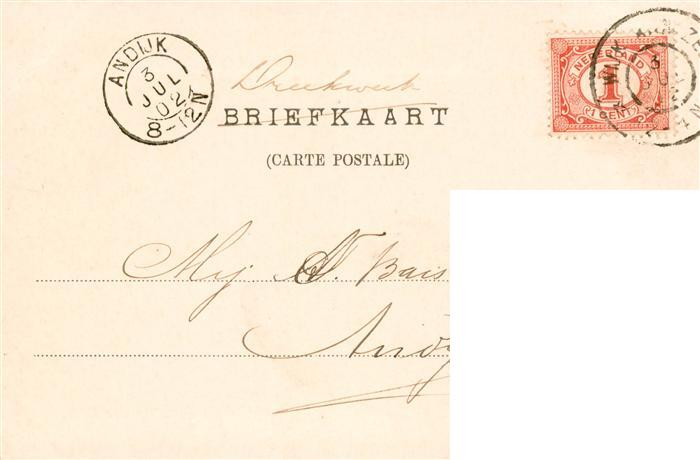 ANDIJK
3
JUL
02
8-12N
Drukwerk
BRIEFKAART
(CARTE POSTALE)
NEDERLAND
1
1 CENT
3
Mej. A. Bais